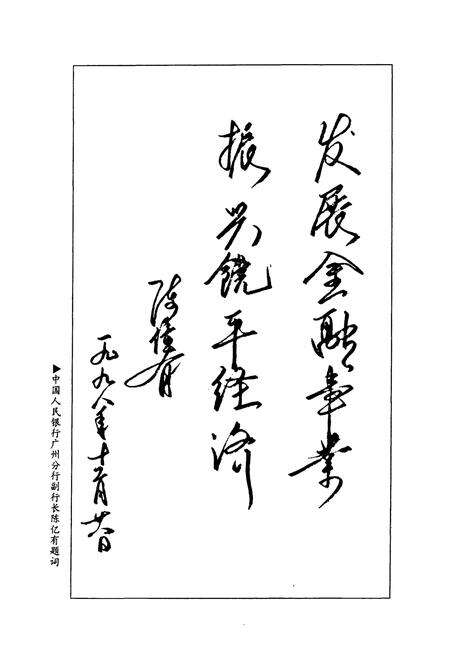 发展金融事业
振兴饶平经济
陈億有
一九九八年十二月廿八日
▶中国人民银行广州分行副行长陈亿有题词